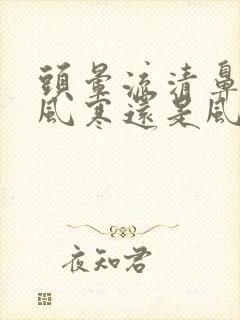 頭暈流清鼻
風寒還是風
夜知君